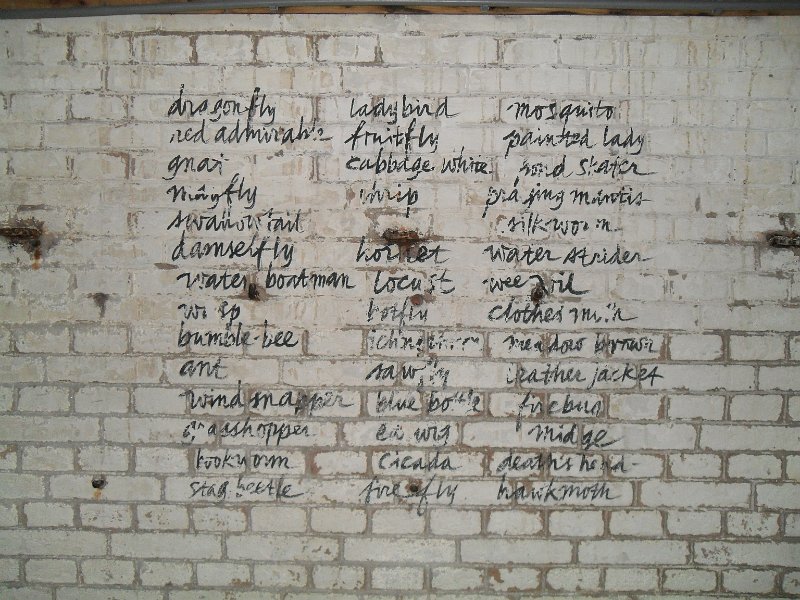 dragonfly ladybird mosquito
red admirable fruitfly painted lady
gnat cabbage white pond skater
mayfly thrip praying mantis
swallowtail silkworm
damselfly hornet water strider
water boatman locust weevil
wasp botfly clothes moth
bumble-bee meadow brown
ant sawfly leather jacket
wind snapper blue bottle firebug
grasshopper earwig midge
bookworm cicada death's head-
stag beetle firefly hawkmoth